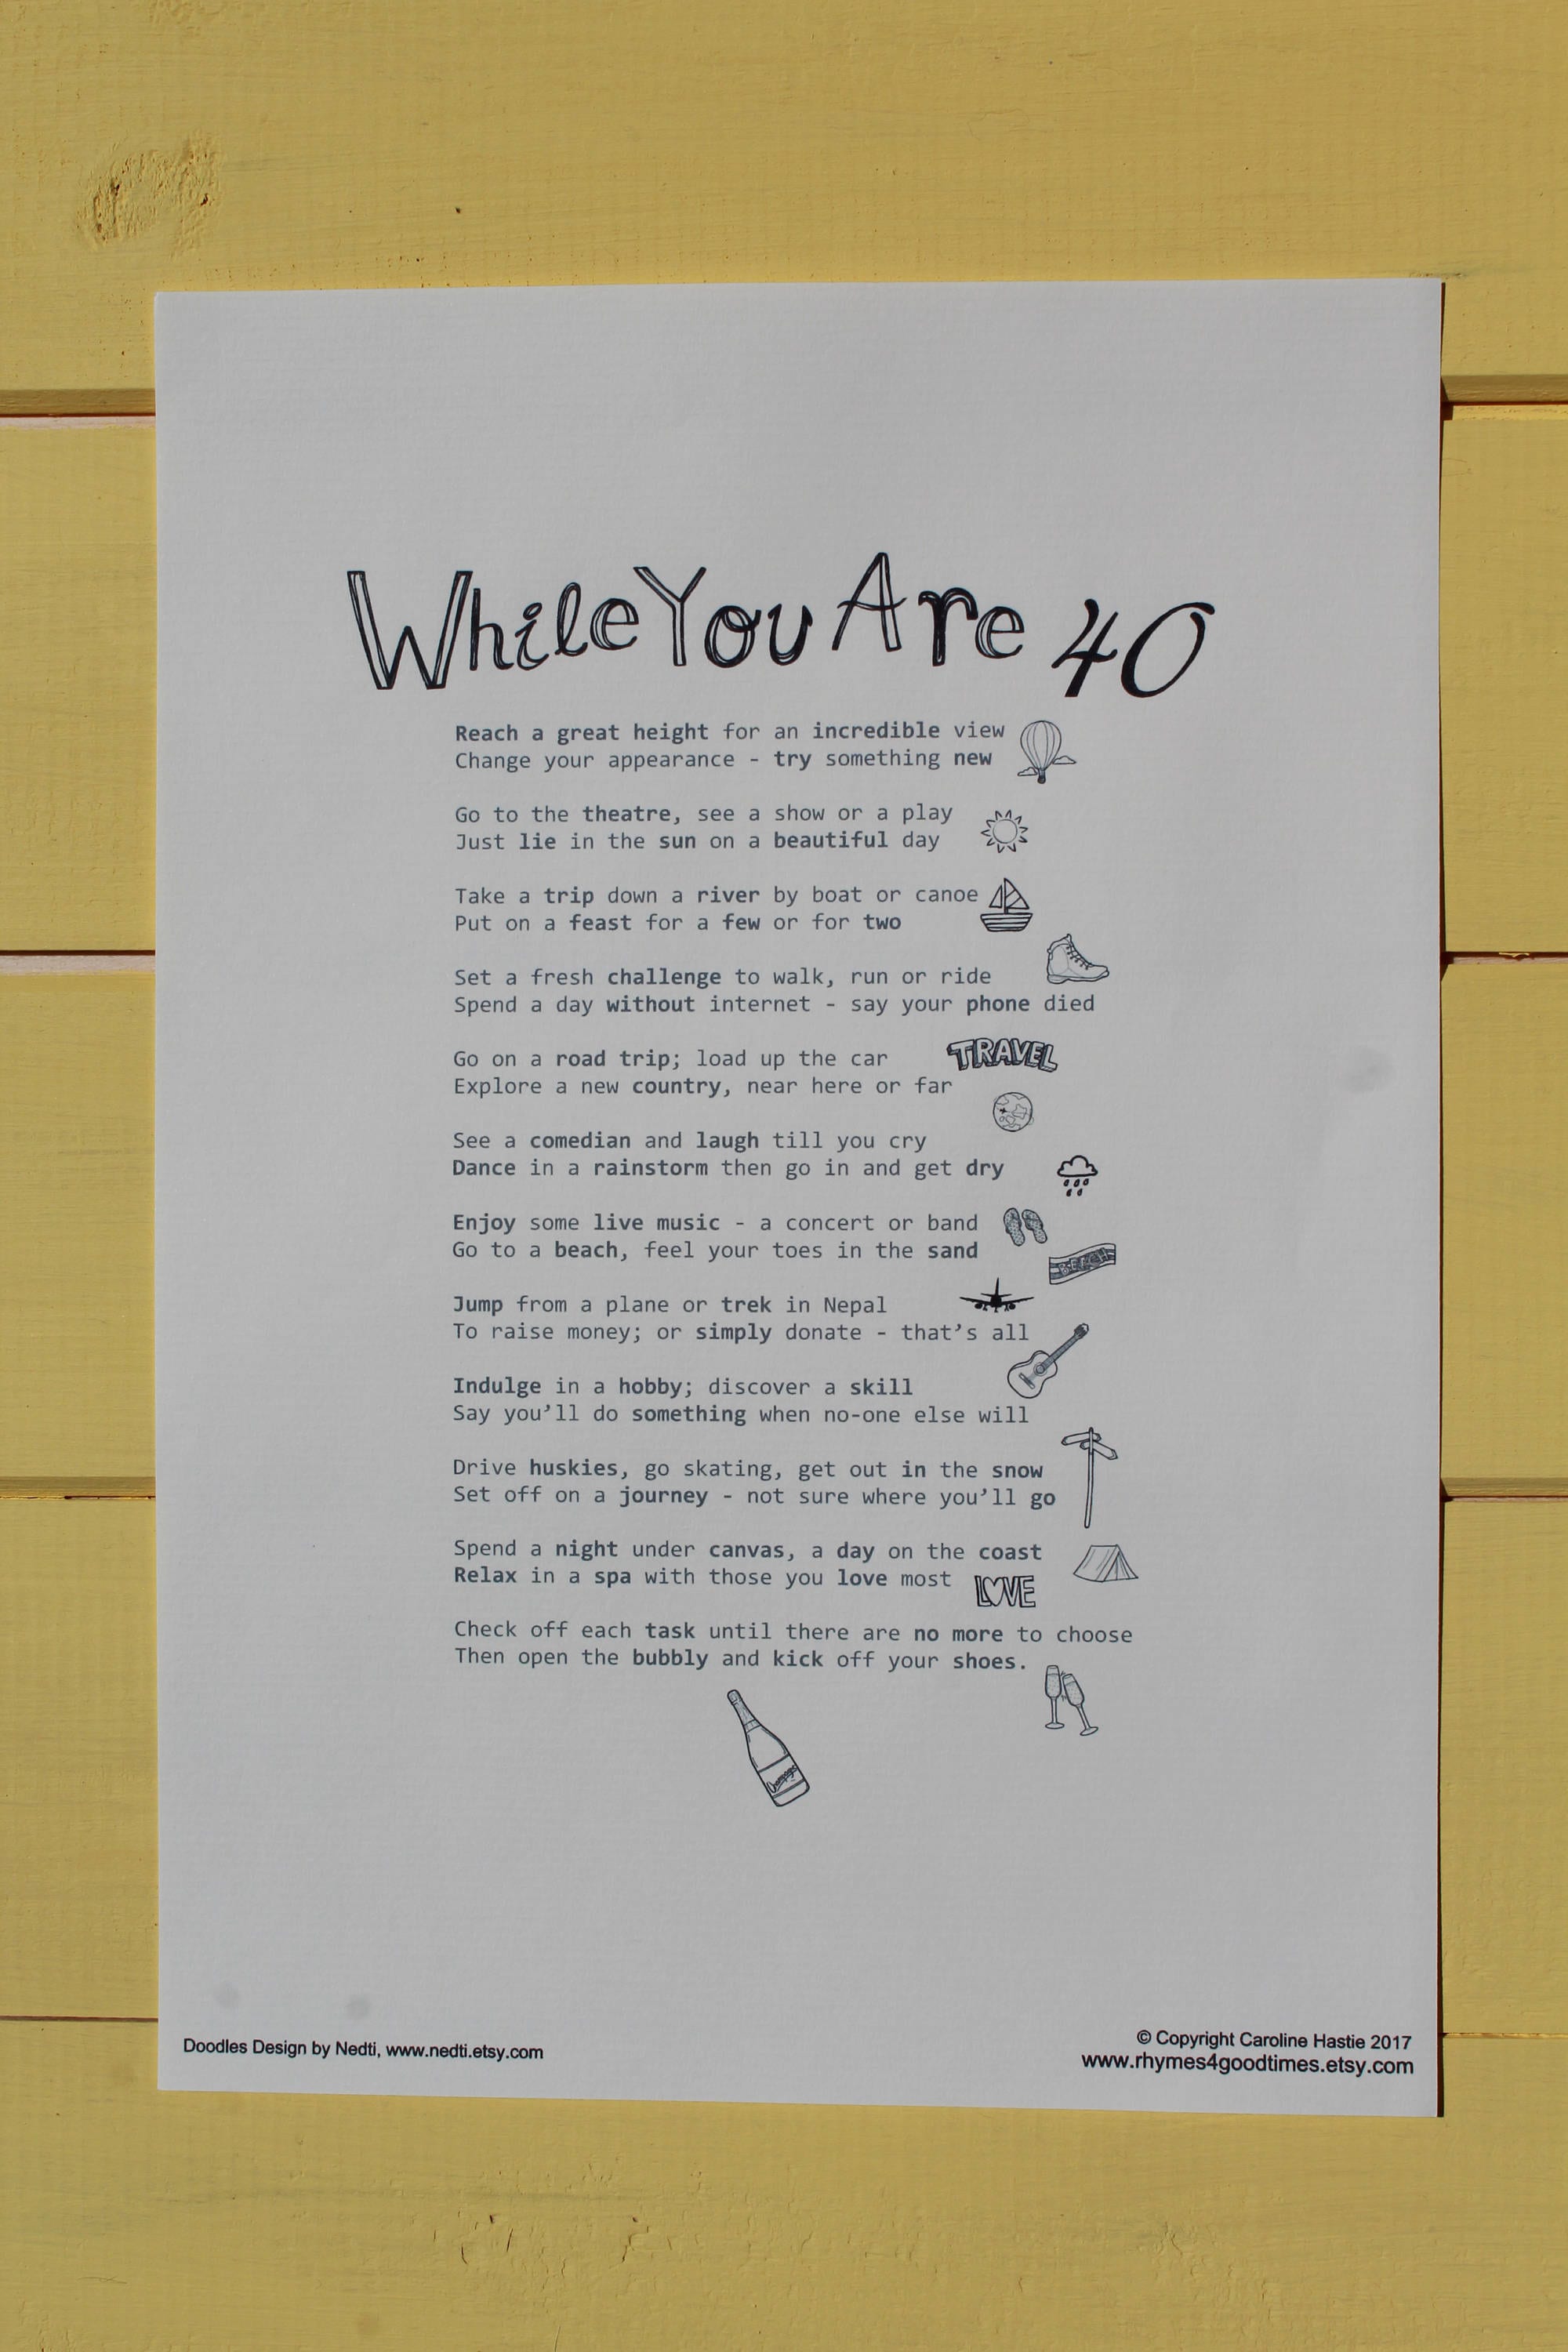 While You Are 40
Reach a great height for an incredible view
Change your appearance - try something new
Go to the theatre, see a show or a play
Just lie in the sun on a beautiful day
Take a trip down a river by boat or canoe
Put on a feast for a few or for two
Set a fresh challenge to walk, run or ride
Spend a day without internet - say your phone died
Go on a road trip; load up the car
TRAVEL
Explore a new country, near here or far
See a comedian and laugh till you cry
Dance in a rainstorm then go in and get dry
Enjoy some live music - a concert or band
Go to a beach, feel your toes in the sand
BEACH
Jump from a plane or trek in Nepal
To raise money; or simply donate - that's all
Indulge in a hobby; discover a skill
Say you'll do something when no-one else will
Drive huskies, go skating, get out in the snow
Set off on a journey - not sure where you'll go
Spend a night under canvas, a day on the coast
Relax in a spa with those you love most
LOVE
Check off each task until there are no more to choose
Then open the bubbly and kick off your shoes.
Champagne
Doodles Design by Nedti, www.nedti.etsy.com
© Copyright Caroline Hastie 2017
www.rhymes4goodtimes.etsy.com